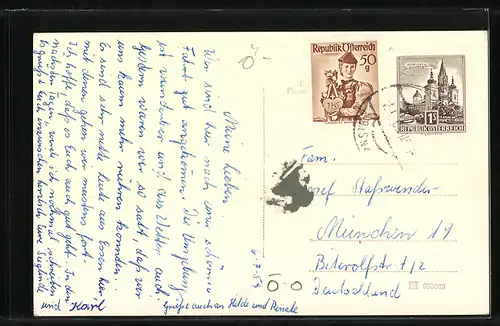 Meine Lieben!
Wir sind hier nach einer schönen
Fahrt gut angekommen. Die Umgebung
ist wunderbar und das Wetter auch.
Gestern waren wir so satt, daß wir
uns kaum mehr rühren konnten.
Es sind sehr nette Leute aus Essen hier
mit denen gehen wir meistens fort.
Ich hoffe, daß es Euch auch gut geht. In den
nächsten Tagen werde ich nochmal schreiben
Es grüßt Euch inzwischen herzlich Eure Sieglinde
und Karl
Grüße auch an Hilde und Renate
Republik Österreich
50
g
1S
REPUBLIK ÖSTERREICH
Fam.
Josef Staßwender
München 19
Biterolfstr. 1/2
Deutschland